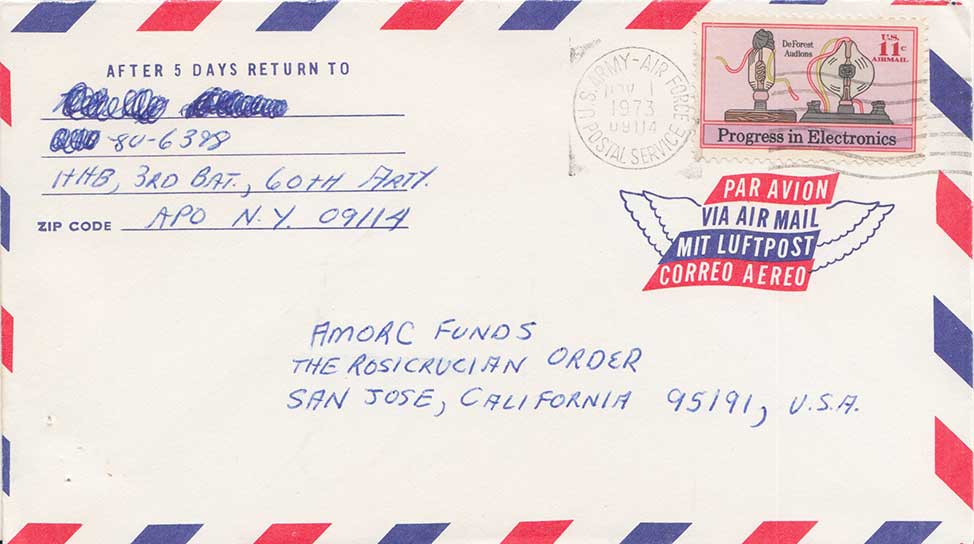 AFTER 5 DAYS RETURN TO
80-6398
HHB, 3RD BAT., 60TH ARTY.
ZIP CODE APO N.Y. 09114
U.S. ARMY-AIR FORCE
1973
09114
POSTAL SERVICE
DeForest
Audions
U.S.
11c
AIRMAIL
Progress in Electronics
PAR AVION
VIA AIR MAIL
MIT LUFTPOST
CORREO AEREO
AMORC FUNDS
THE ROSICRUCIAN ORDER
SAN JOSE, CALIFORNIA 95191, U.S.A.